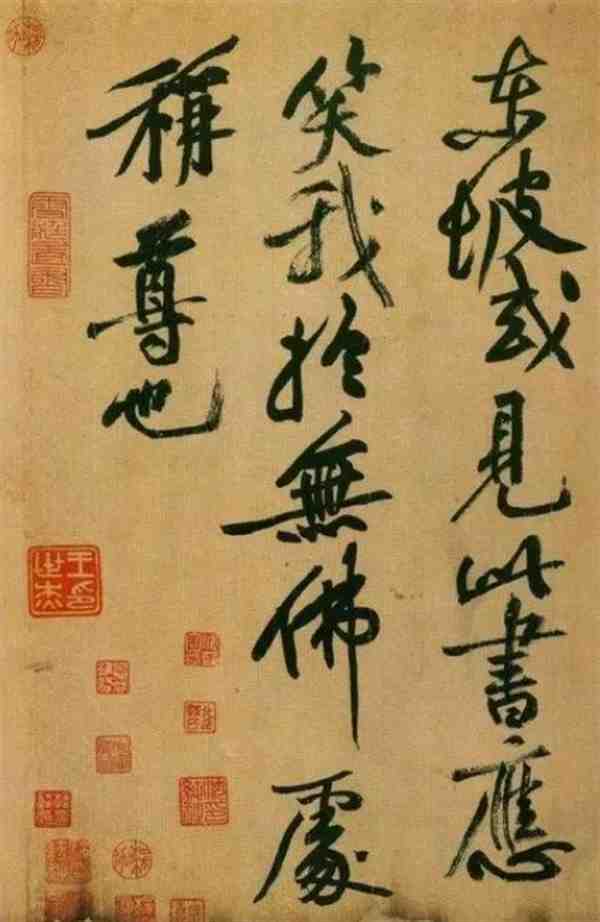 东坡或見此書應
笑我於無佛處
稱尊也
王世杰印